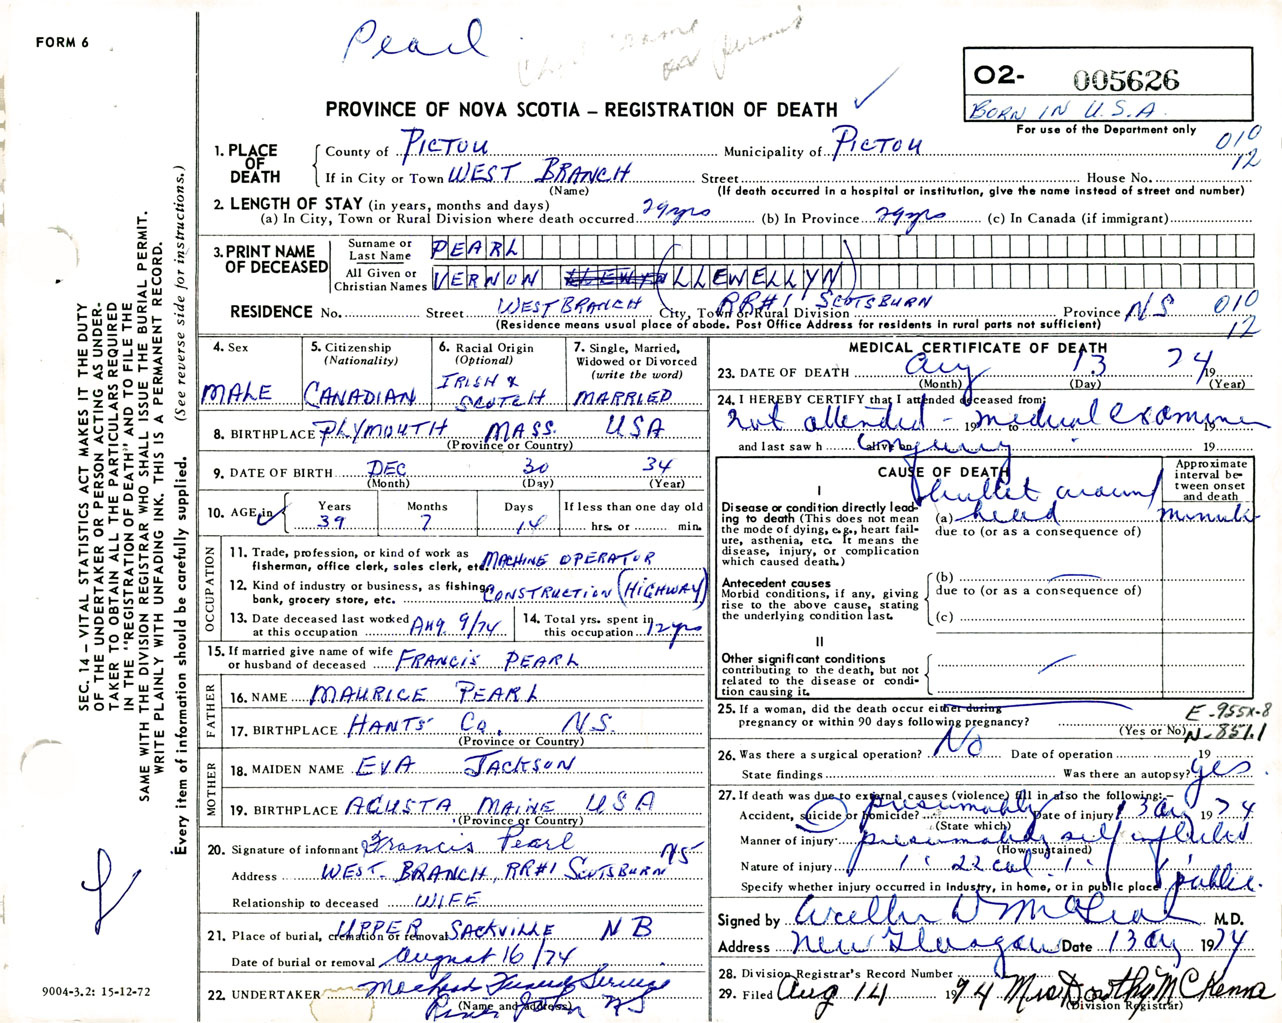 FORM 6
Pearl
name
on
O2- 005626
BORN IN U.S.A.
For use of the Department only
PROVINCE OF NOVA SCOTIA – REGISTRATION OF DEATH
010
12
1. PLACE OF DEATH
County of PICTOU Municipality of PICTOU
If in City or Town WEST BRANCH Street House No.
(Name) (If death occurred in a hospital or institution, give the name instead of street and number)
2. LENGTH OF STAY (in years, months and days)
(a) In City, Town or Rural Division where death occurred 29yrs (b) In Province 29yrs (c) In Canada (if immigrant)
3. PRINT NAME OF DECEASED
Surname or Last Name PEARL
All Given or Christian Names VERNON LLEWELLYN
RESIDENCE No. Street WEST BRANCH City, Town or Rural Division RR#1 SCOTSBURN Province NS 010
12
(Residence means usual place of abode. Post Office Address for residents in rural parts not sufficient)
4. Sex
MALE
5. Citizenship
(Nationality)
CANADIAN
6. Racial Origin
(Optional)
IRISH & SCOTCH
7. Single, Married,
Widowed or Divorced
(write the word)
MARRIED
8. BIRTHPLACE PLYMOUTH MASS. USA
(Province or Country)
9. DATE OF BIRTH DEC 30 34
(Month) (Day) (Year)
10. AGE in Years Months Days If less than one day old
39 7 14 hrs. or min.
OCCUPATION
11. Trade, profession, or kind of work as
fisherman, office clerk, sales clerk, etc. MACHINE OPERATOR
12. Kind of industry or business, as fishing,
bank, grocery store, etc. CONSTRUCTION (HIGHWAY)
13. Date deceased last worked
at this occupation Aug. 9/74
14. Total yrs. spent in
this occupation 12 yrs
15. If married give name of wife
or husband of deceased FRANCIS PEARL
FATHER
16. NAME MAURICE PEARL
17. BIRTHPLACE HANTS Co. N.S.
(Province or Country)
MOTHER
18. MAIDEN NAME EVA JACKSON
19. BIRTHPLACE AGUSTA MAINE USA
(Province or Country)
20. Signature of informant Francis Pearl
Address WEST. BRANCH, RR#1 SCOTSBURN NS
Relationship to deceased WIFE
21. Place of burial, cremation or removal UPPER SACKVILLE NB
Date of burial or removal August 16/74
22. UNDERTAKER Funeral Service
(Name and address) NS
MEDICAL CERTIFICATE OF DEATH
23. DATE OF DEATH Aug 13 1974
(Month) (Day) (Year)
24. I HEREBY CERTIFY that I attended deceased from:
not attended - medical examiner
19 to 19
and last saw h alive on 19
enquiry
CAUSE OF DEATH
Approximate interval between onset and death
I
Disease or condition directly leading to death (This does not mean the mode of dying, e.g., heart failure, asthenia, etc. It means the disease, injury, or complication which caused death.)
bullet wound
(a) head minute
due to (or as a consequence of)
Antecedent causes
Morbid conditions, if any, giving rise to the above cause, stating the underlying condition last.
(b)
due to (or as a consequence of)
(c)
II
Other significant conditions
contributing to the death, but not related to the disease or condition causing it.
25. If a woman, did the death occur either during
pregnancy or within 90 days following pregnancy? (Yes or No)
E-955X-8
N-851.1
26. Was there a surgical operation? No Date of operation 19
State findings Was there an autopsy? yes
27. If death was due to external causes (violence) fill in also the following:–
Accident, suicide or homicide? presumably Date of injury 13 Aug 1974
(State which)
Manner of injury presumably self inflicted
(How sustained)
Nature of injury 22 cal
Specify whether injury occurred in industry, in home, or in public place public
Signed by M.D.
Address New Glasgow Date 13 Aug 1974
28. Division Registrar's Record Number
29. Filed Aug 14 1974 Mrs Dorothy McKenna
(Division Registrar)
SEC. 14 – VITAL STATISTICS ACT MAKES IT THE DUTY
OF THE UNDERTAKER OR PERSON ACTING AS UNDER-
TAKER TO OBTAIN ALL THE PARTICULARS REQUIRED
IN THE "REGISTRATION OF DEATH" AND TO FILE THE
SAME WITH THE DIVISION REGISTRAR WHO SHALL ISSUE THE BURIAL PERMIT.
WRITE PLAINLY WITH UNFADING INK. THIS IS A PERMANENT RECORD.
Every item of information should be carefully supplied. (See reverse side for instructions.)
9004-3.2: 15-12-72